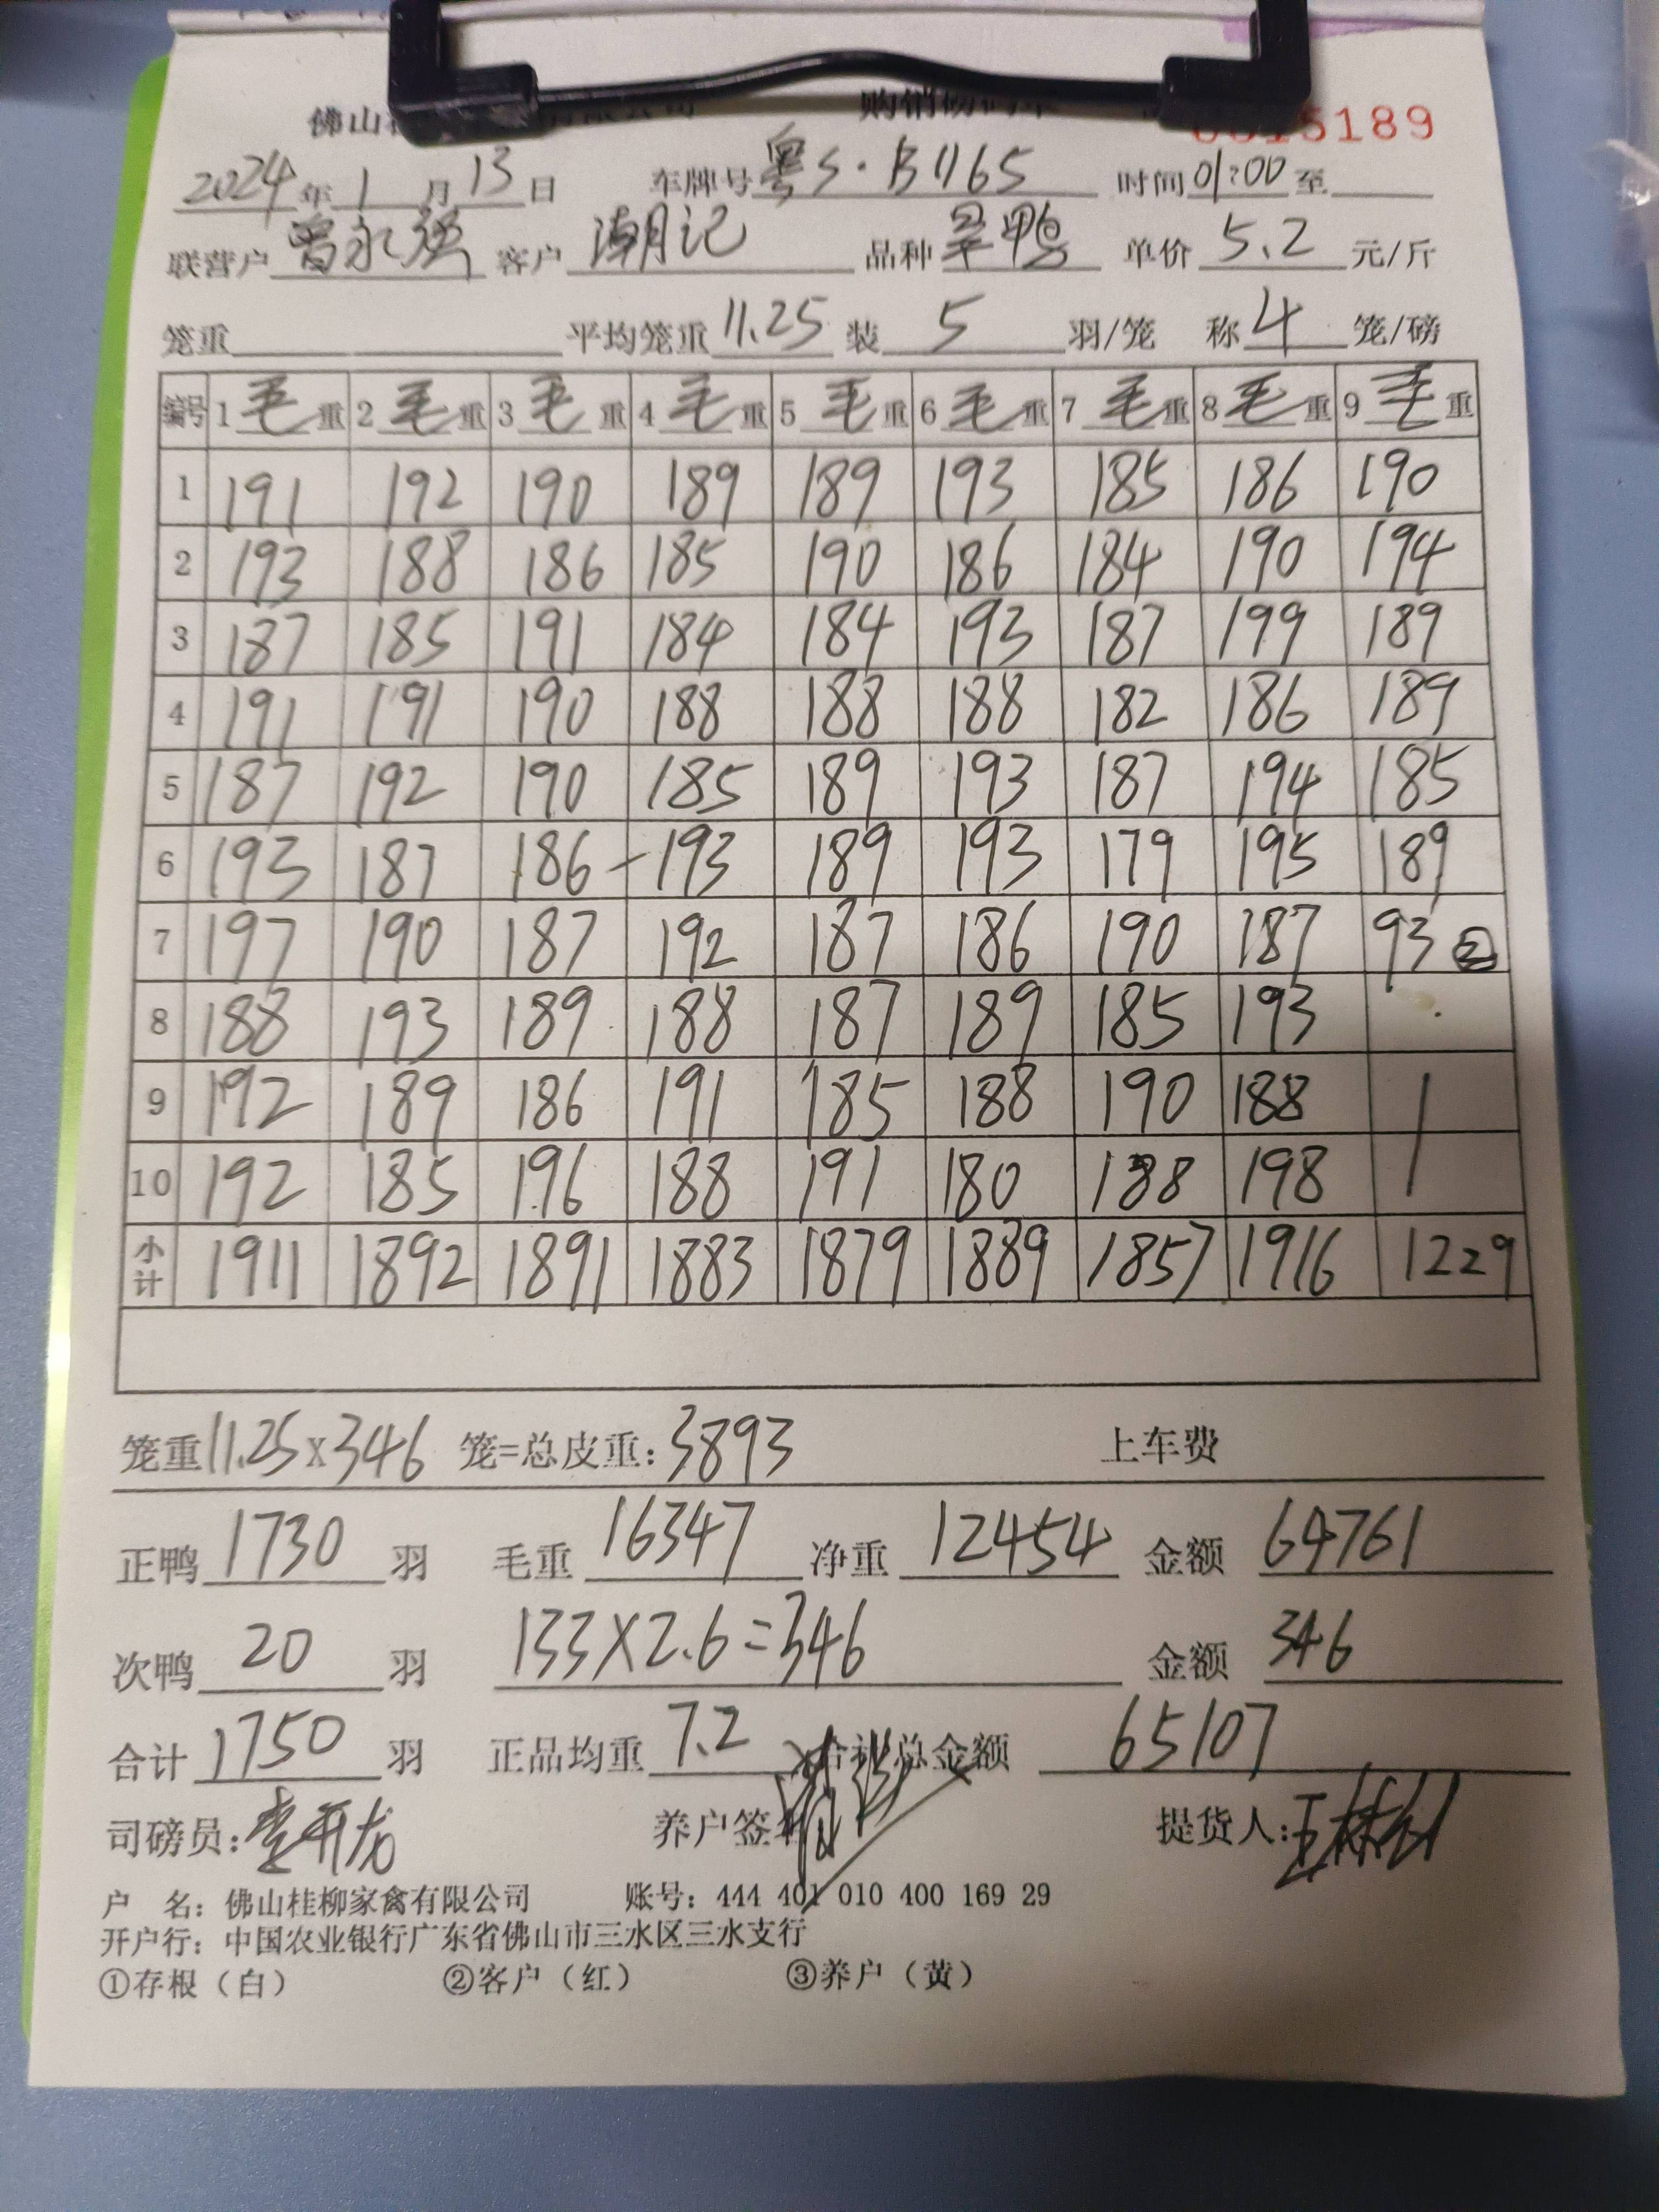 佛山
15189
2024年1月13日 车牌号粤S·B1165 时间01:00至
联营户曾永强 客户潮记 品种旱鸭 单价5.2元/斤
笼重 平均笼重11.25装5羽/笼 称4笼/磅
编号 1毛重 2毛重 3毛重 4毛重 5毛重 6毛重 7毛重 8毛重 9毛重
1 191 192 190 189 189 193 185 186 190
2 193 188 186 185 190 186 184 190 194
3 187 185 191 184 184 193 187 199 189
4 191 191 190 188 188 188 182 186 189
5 187 192 190 185 189 193 187 194 185
6 193 187 186 193 189 193 179 195 189
7 197 190 187 192 187 186 190 187 93 ②
8 188 193 189 188 187 189 185 193
9 192 189 186 191 185 188 190 188
10 192 185 196 188 191 180 188 198
小计 1911 1892 1891 1883 1879 1889 1857 1916 1229
笼重11.25x346 笼=总皮重:3893 上车费
正鸭1730羽 毛重16347 净重12454 金额64761
次鸭20羽 133X2.6=346 金额346
合计1750羽 正品均重7.2 总金额65107
司磅员: 养户签 提货人:
户 名: 佛山桂柳家禽有限公司 账号: 444 401 010 400 169 29
开户行: 中国农业银行广东省佛山市三水区三水支行
①存根(白) ②客户(红) ③养户(黄)